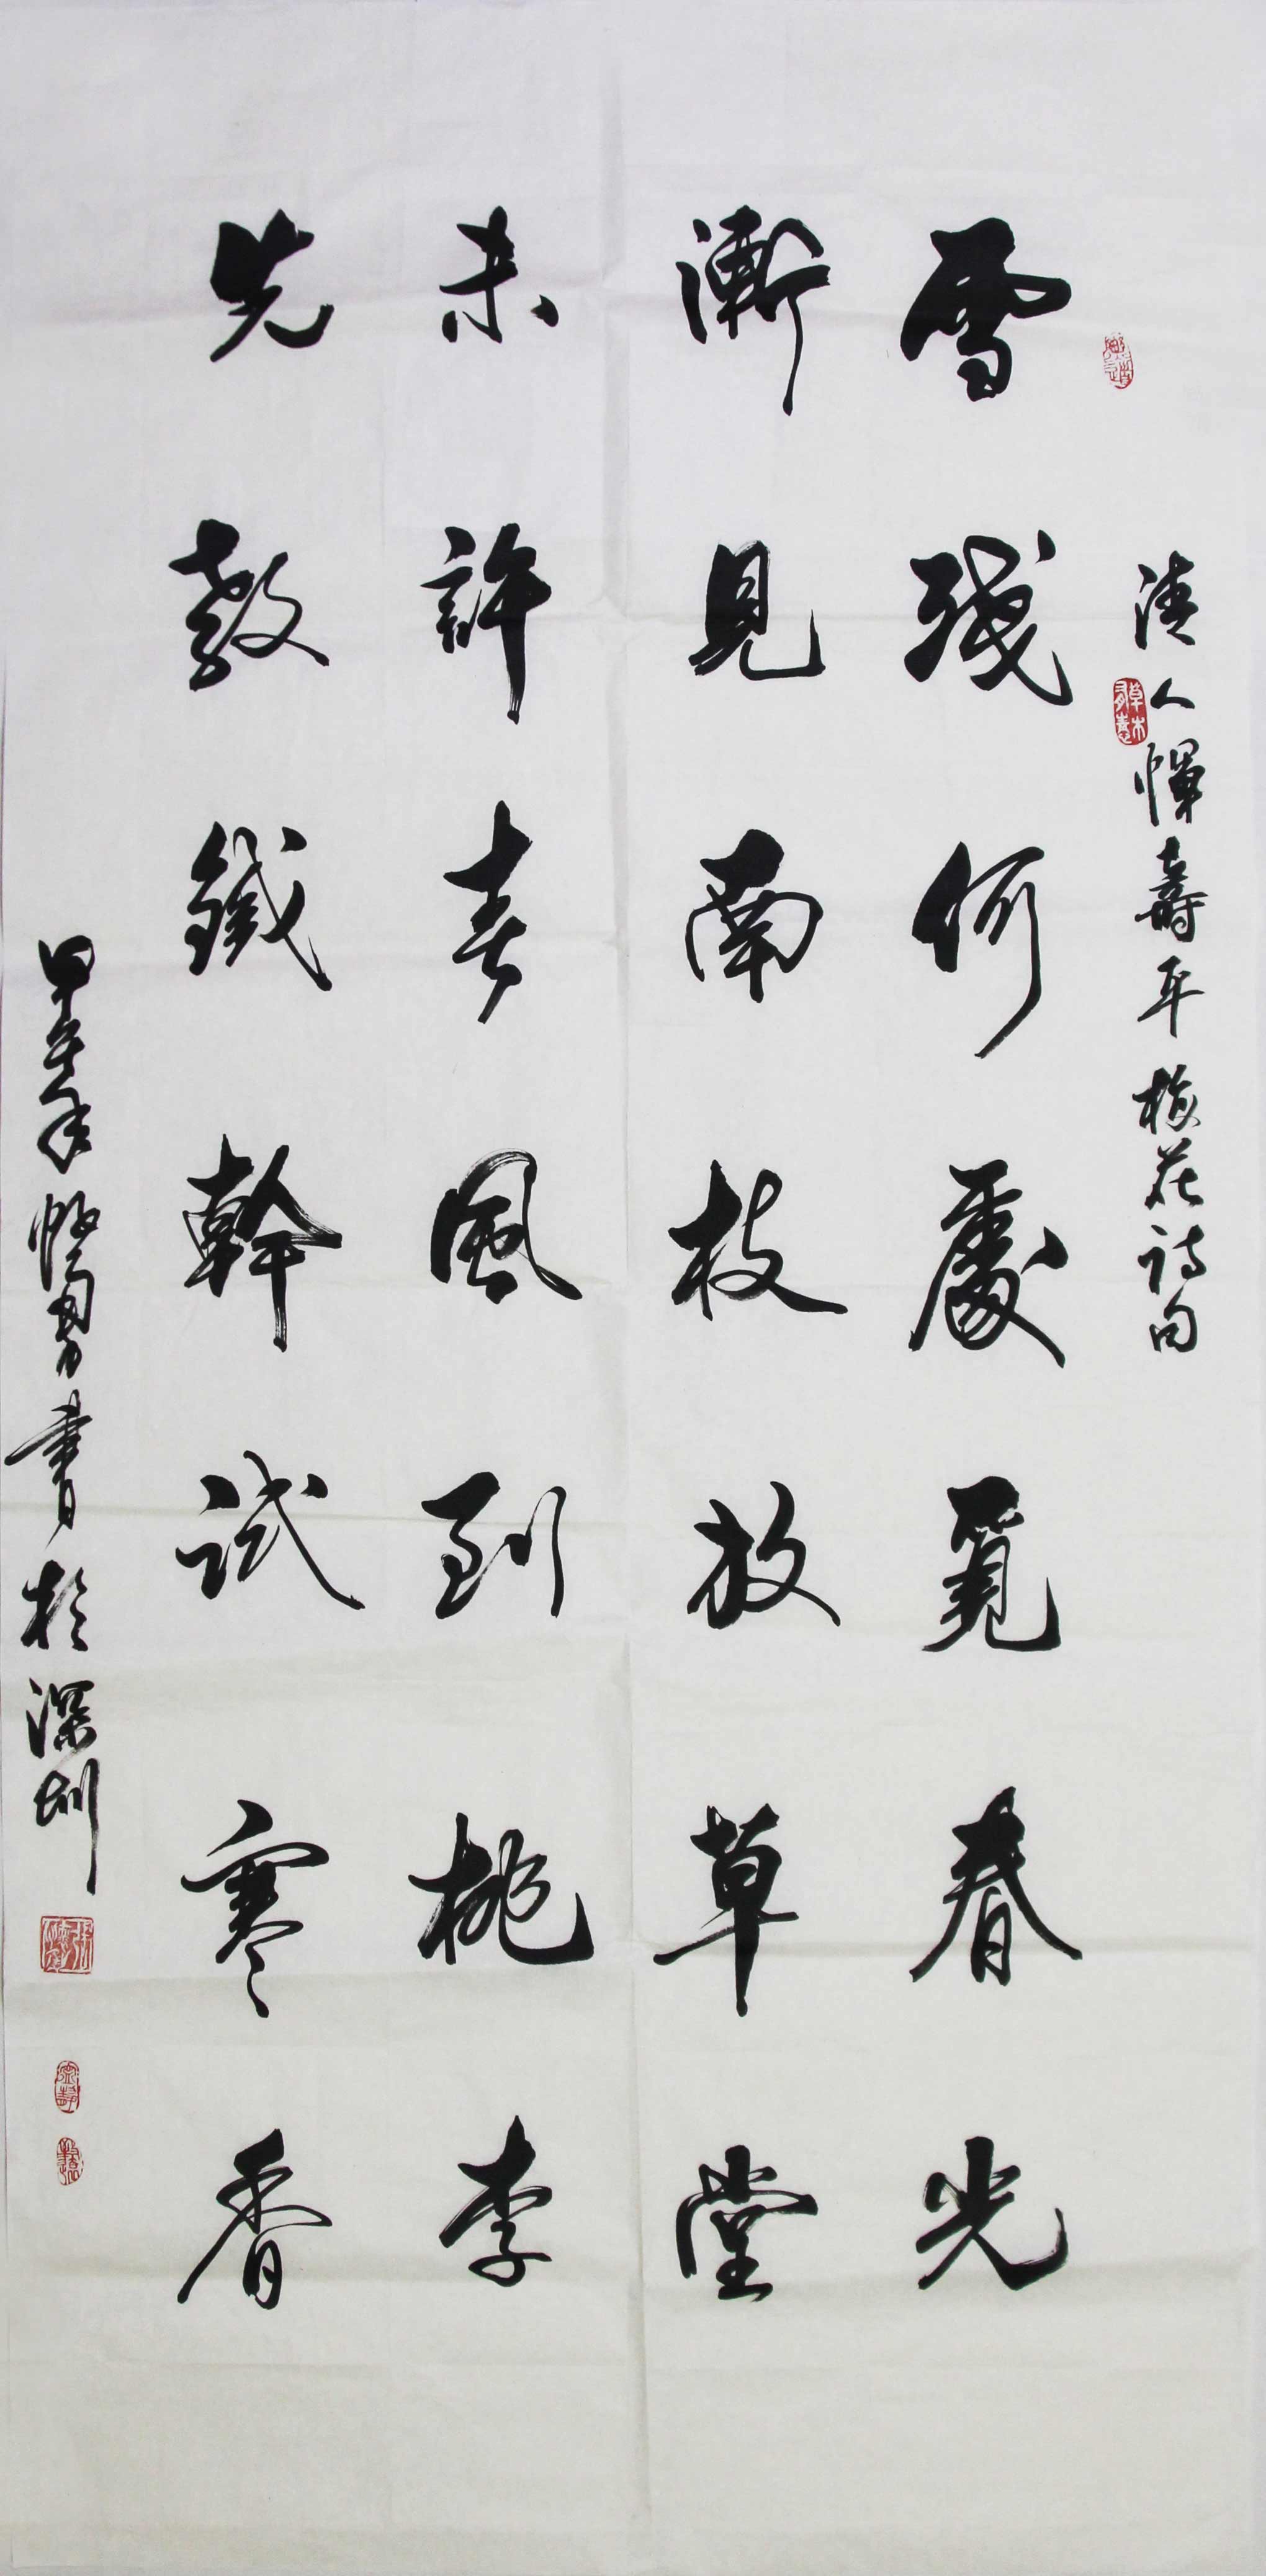 清人惲壽平梅花詩句
雪殘何處覓春光
漸見南枝放草堂
未許春風到桃李
先教鐵幹試寒香
甲午年 書於深圳
草木有意